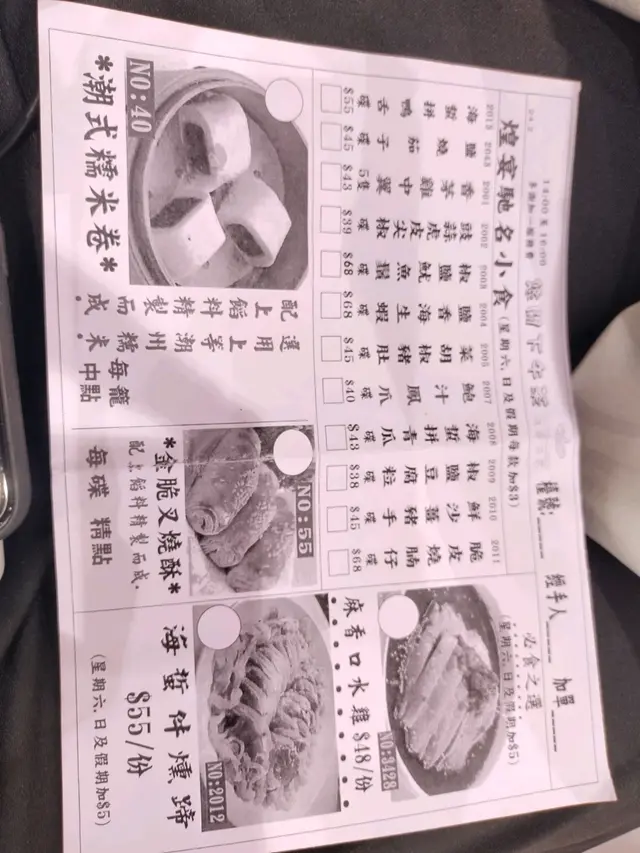 14:00至16:00
櫃號:
經手人
加單
煌宴馳名小食(星期六,日及假期每款加$3)
2013 海蜇拼鴨舌 碟 $55
2043 鹽燒茄子 碟 $45
2001 香茅雞中翼 5隻 $43
2002 豉蒜虎皮尖椒 碟 $39
2003 椒鹽魷魚鬚 碟 $68
2004 鹽香海生蝦 碟 $68
2005 菜胡椒豬肚 碟 $45
2007 鮑汁鳳爪 碟 $40
2008 海蜇拼青瓜 碟 $43
2009 椒鹽豆腐粒 碟 $38
2010 鮮沙薑豬手 碟 $45
2011 脆皮燒腩仔 碟 $68
必食之選
(星期六,日及假期加$5)
NO:3428
麻香口水雞 $48/份
NO:40
*潮式糯米卷*
選用上等潮州糯米
配上餡料精製而成.
每籠 中點
NO:55
*金脆叉燒酥*
配上餡料精製而成.
每碟 精點
NO:2012
海蜇件燻蹄
$55/份
(星期六,日及假期加$5)